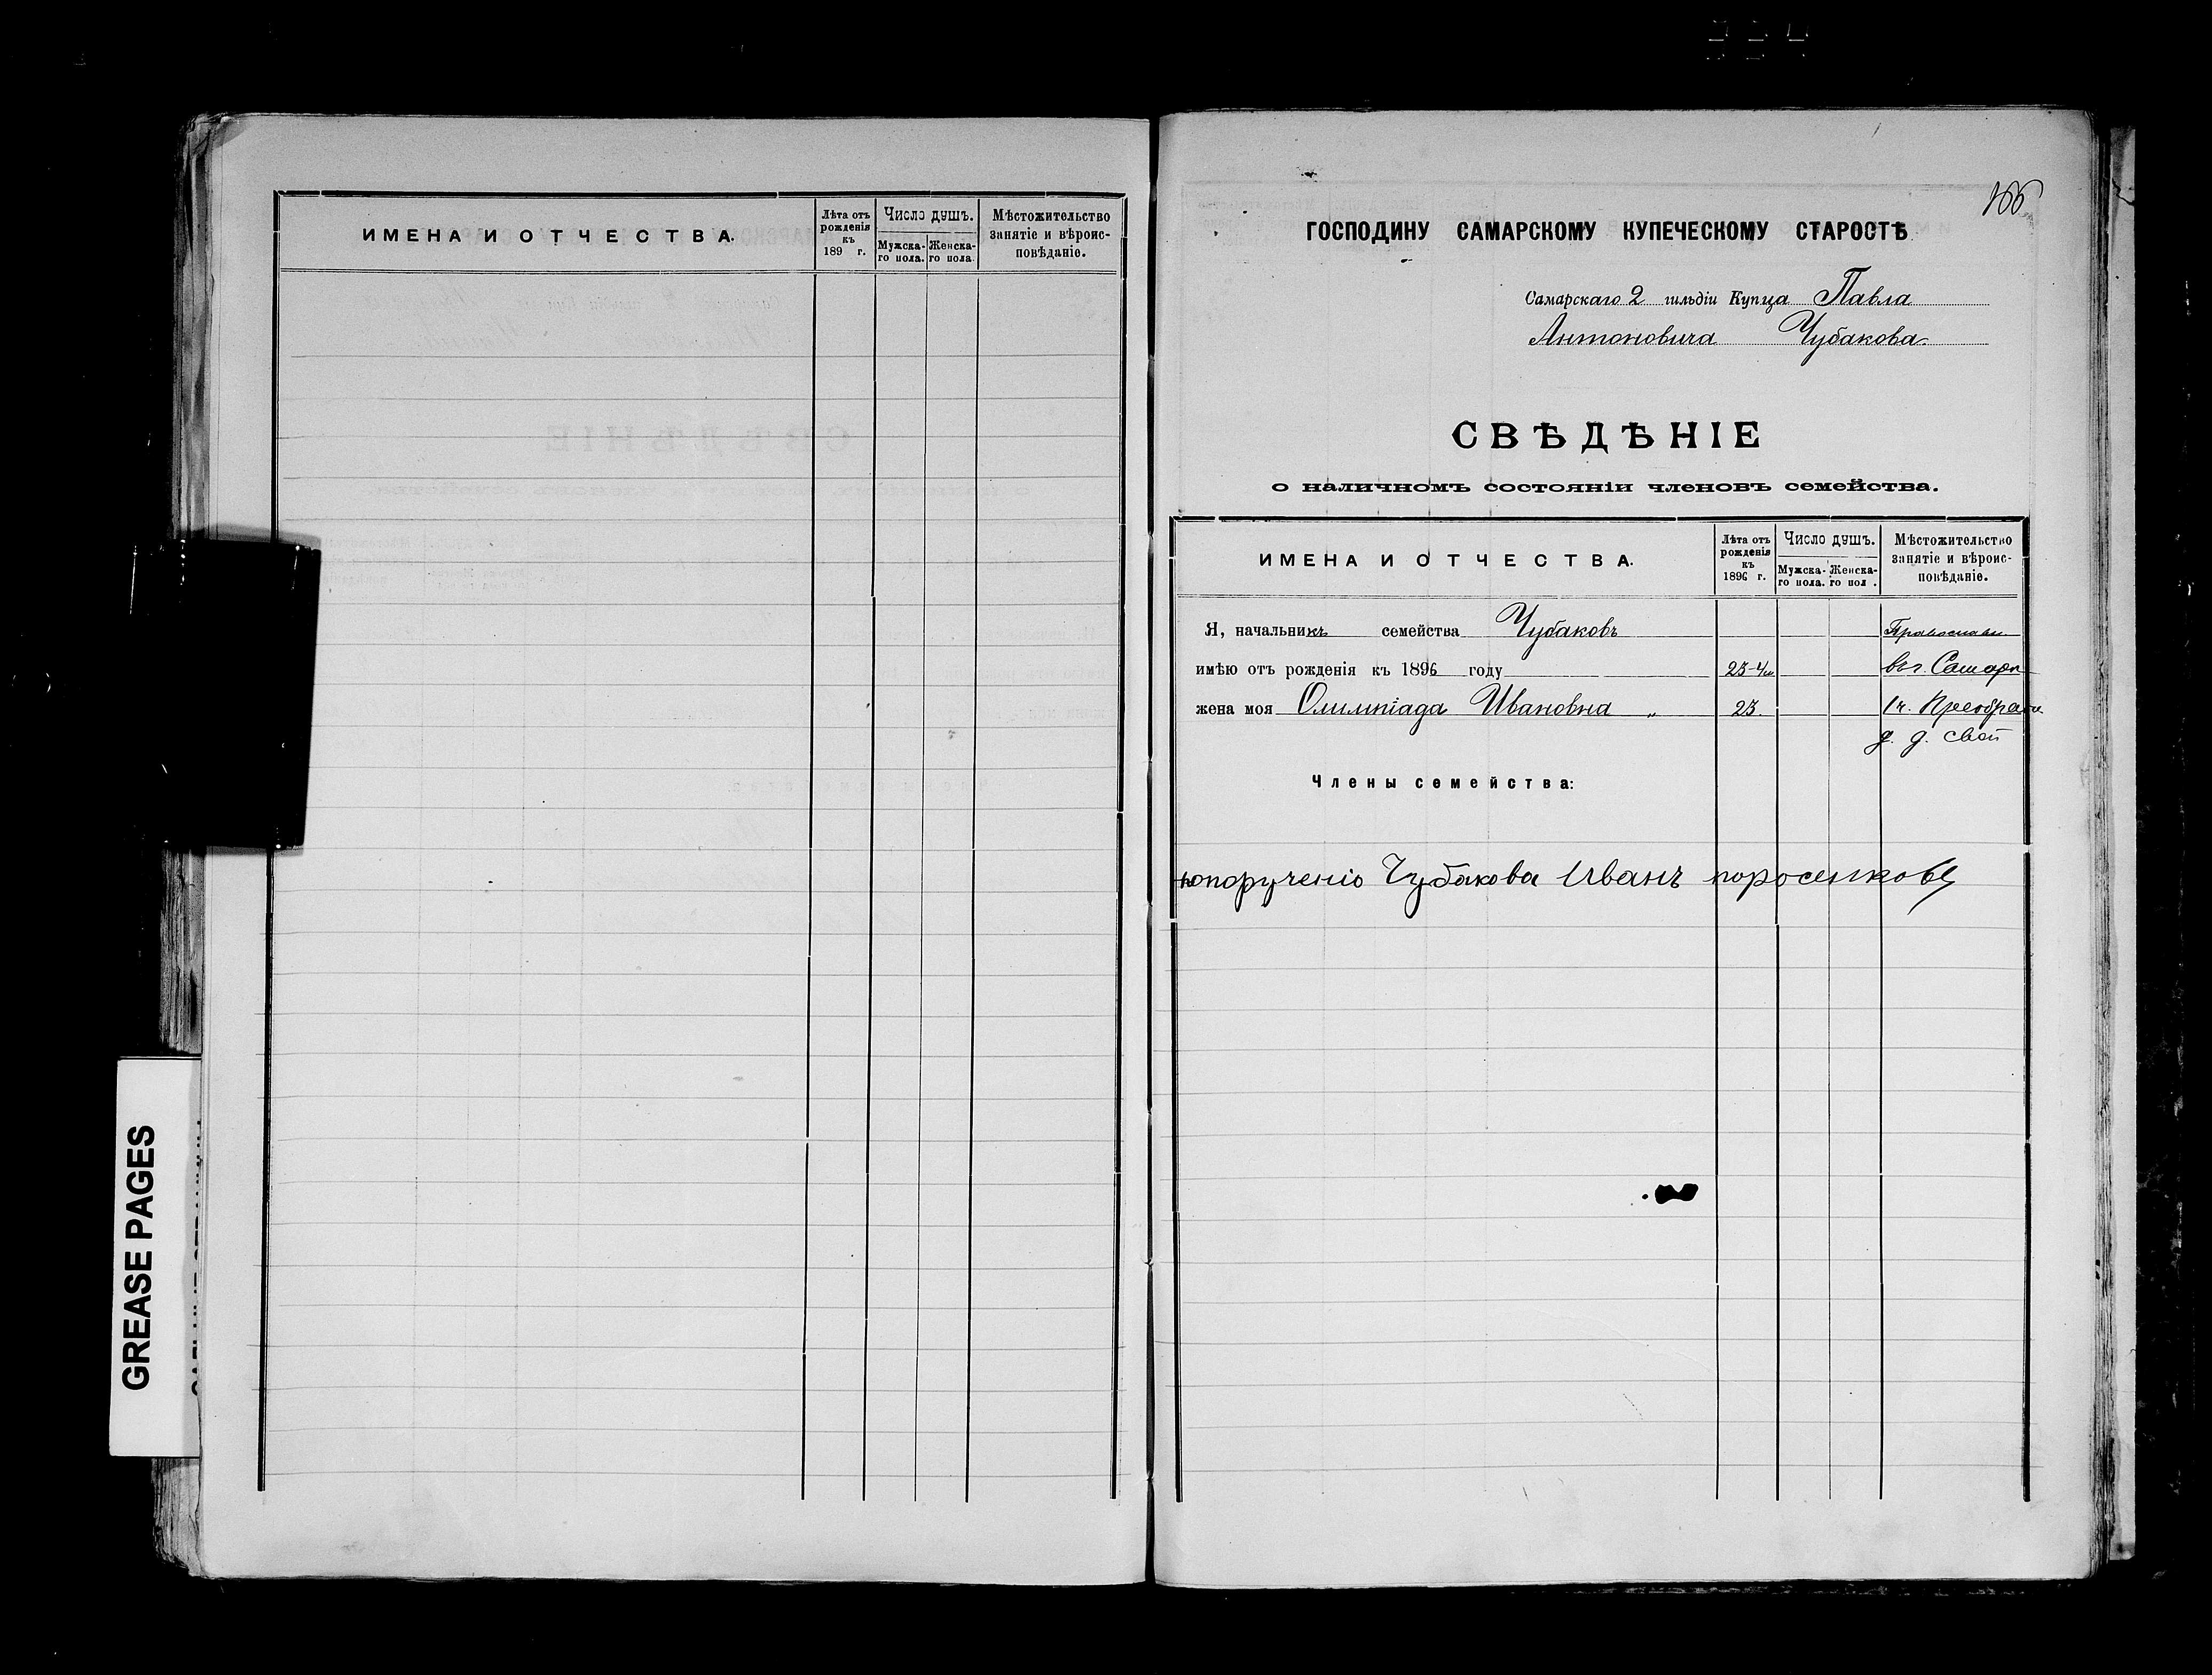 ИМЕНА И ОТЧЕСТВА.
Лѣта отъ рожденія къ 189 г.
Число душъ.
Мужска-го пола.
Женска-го пола
Мѣстожительство занятіе и вѣроис-повѣданіе.
GREASE PAGES
166
ГОСПОДИНУ САМАРСКОМУ КУПЕЧЕСКОМУ СТАРОСТѢ
Самарскаго 2 гильдіи Купца Павла
Антоновича Чубакова
СВѢДѢНІЕ
о наличномъ состояніи членовъ семейства.
ИМЕНА И ОТЧЕСТВА.
Лѣта отъ рожденія къ 1896 г.
Число душъ.
Мужска-го пола.
Женска-го пол .
Мѣстожительство занятіе и вѣроис-повѣданіе.
Я, начальникъ семейства Чубаковъ Православн.
имѣю отъ рожденія къ 1896 году въ г. Самарѣ
жена моя Олимпіада Ивановна „ 23. 1 ч. Преображен
д. свой
Члены семейства:
попорученію Чубакова Иванъ поросенковъ